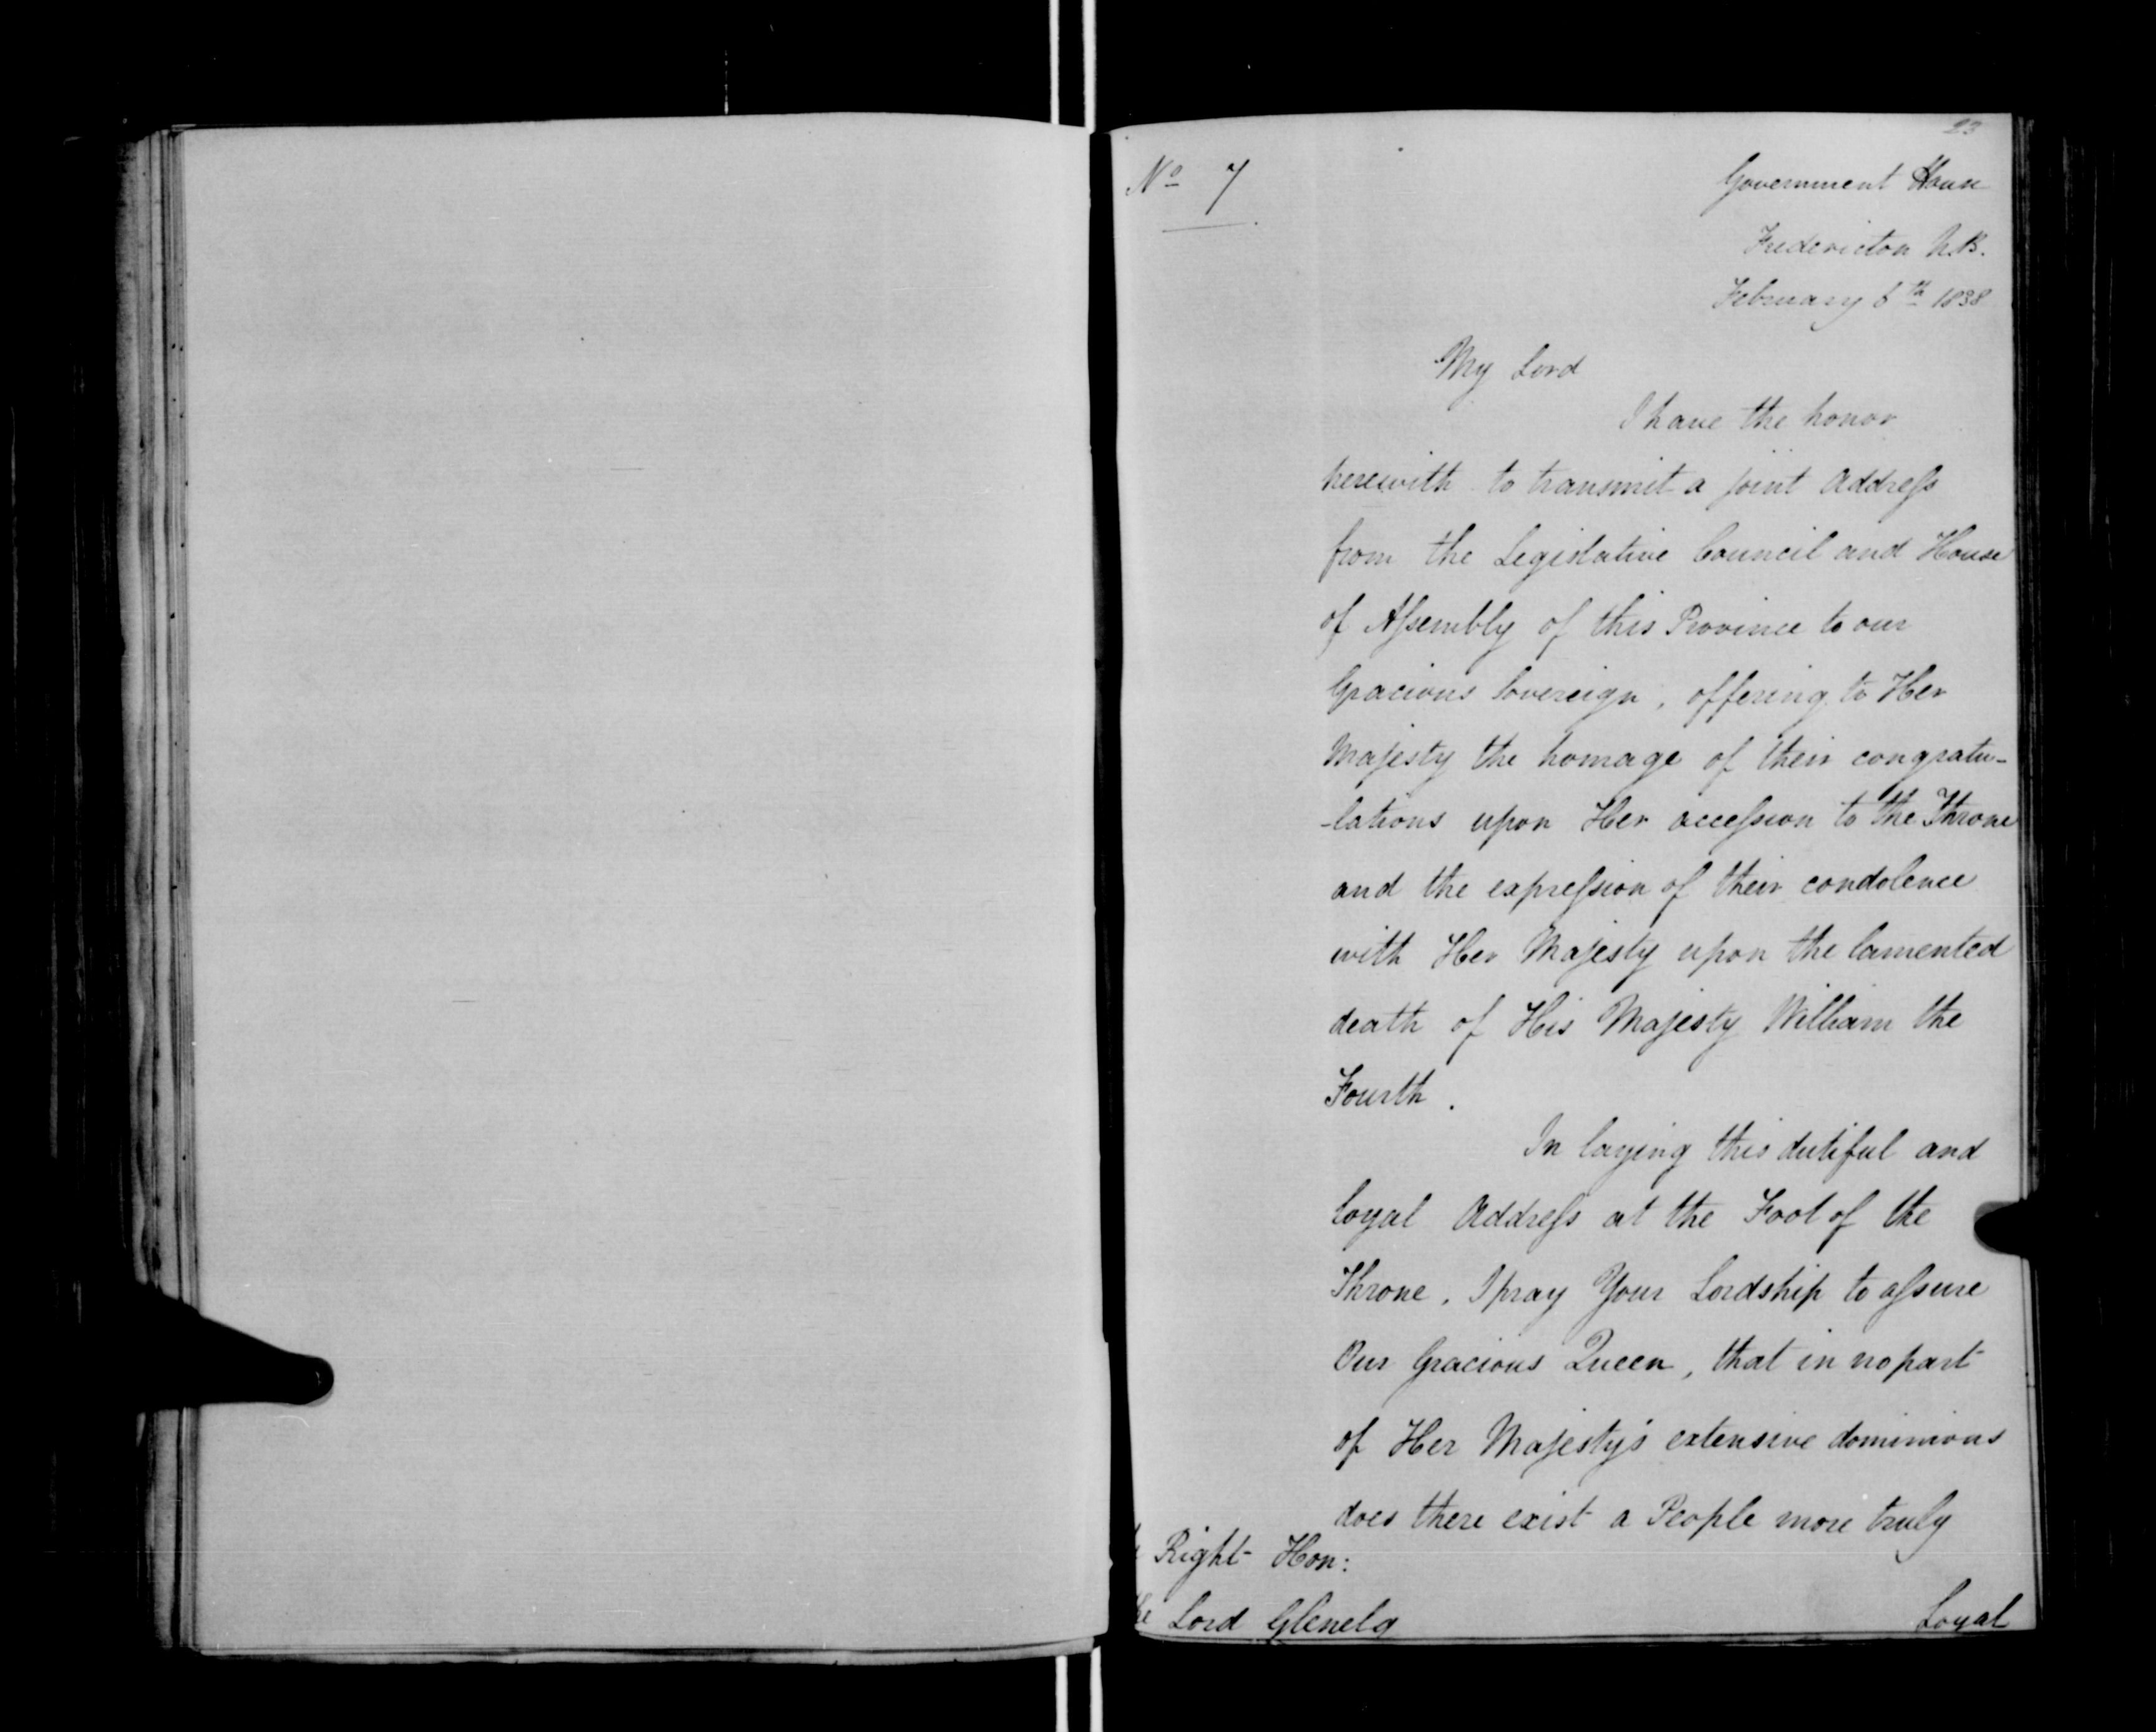 23
No 7
Government House
Fredericton N.B.
February 6th 1838
My Lord
I have the honor
herewith to transmit a joint Address
from the Legislative Council and House
of Assembly of this Province to our
Gracious Sovereign, offering to Her
Majesty the homage of their congratu-
-lations upon Her accession to the Throne
and the expression of their condolence
with Her Majesty upon the lamented
death of His Majesty William the
Fourth.
In laying this dutiful and
loyal Address at the Foot of the
Throne, I pray Your Lordship to assure
Our Gracious Queen, that in no part
of Her Majesty's extensive dominions
does there exist a People more truly
Right Hon:
Lord Glenelg
Loyal